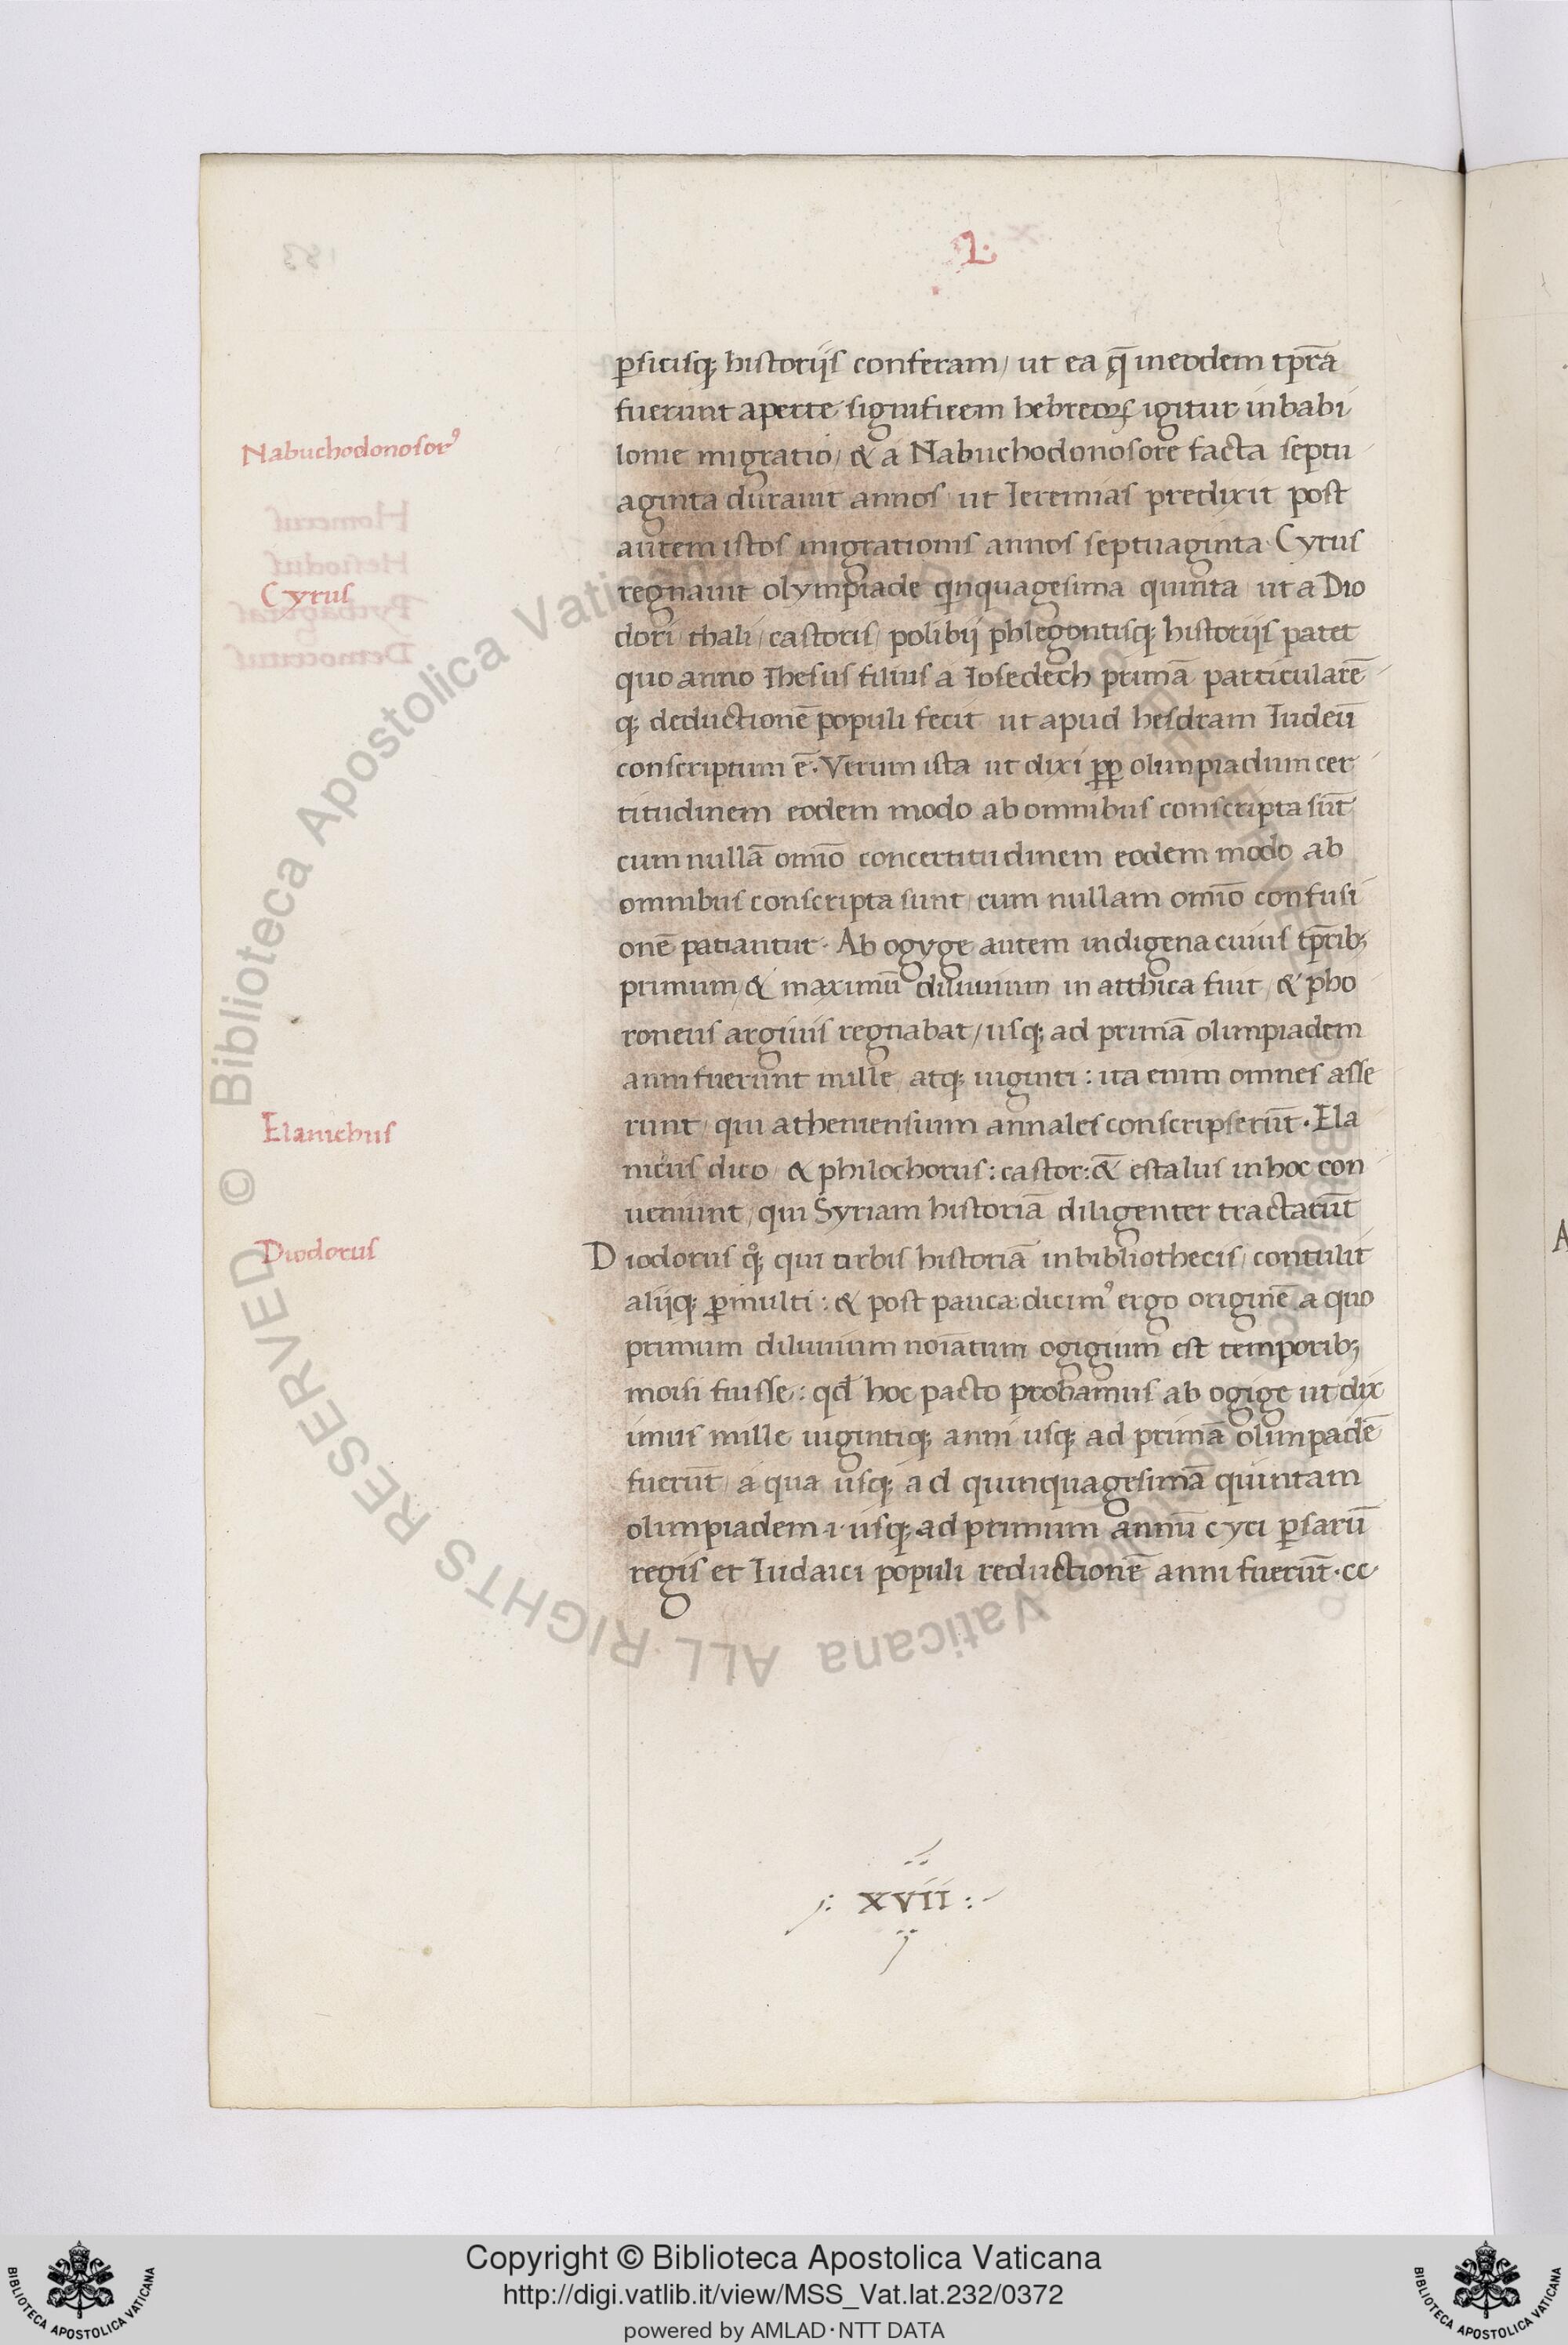 L.
ꝑsicisq; historijs conferam / ut ea q̄ in eodem tp̄ra
fuerunt aperte significem hebreoꝝ igitur in babi
lonie migratio / & a Nabuchodonosore facta septu
aginta durauit annos ut Ieremias predixit post
autem istos migrationis annos septuaginta Cyrus
regnauit olympiade qinquagesima quinta ut a Dio
dori / thali / castoris / polibij phlegontisq; historijs patet
quo anno Ihesus filius a Iosedech primā particularē
q; deductionē populi fecit ut apud hesdram Iudeū
conscriptum ē. Verum ista ut dixi ꝓꝓ olimpiadum cer
titudinem eodem modo ab omnibus conscripta sūt
cum nullā omīo concertitudinem eodem modo ab
omnibus conscripta sunt / cum nullam omīo confusi
onē patiantur. Ab ogyge autem indigena cuius tp̄rib;
primum / & maximū diluuium in atthica fuit / & pho
roneus argiuis regnabat / usq; ad primā olimpiadem
anni fuerunt mille / atq; uiginti : ita enim omnes asse
runt / qui atheniensium annales conscripserūt. Ela
nicus dico / & philochorus : castor : & estalus in hoc con
ueniunt / qui Syriam historiā diligenter tractarūt
Diodorus q°; qui orbis historiā in bibliothecis / contulit
alijq; ꝑmulti : & post pauca dicim᾿ ergo originē a quo
primum diluuium noīatum ogigium est temporib;
moisi fuisse : qd̄ hoc pacto probamus ab ogige ut dix
imus mille uigintiq; anni usq; ad primā olimpadē
fuerūt / a qua usq; ad quinquagesimā quintam
olimpiadem .i. usq; ad primum annū cyri ꝑsarū
regis et Iudaici populi reductionē anni fuerūt . cc.
Nabuchodonosor᾿
Cyrus
Elanichus
Diodorus
: XVII :
© Biblioteca Apostolica Vaticana ALL RIGHTS RESERVED
Copyright © Biblioteca Apostolica Vaticana
http://digi.vatlib.it/view/MSS_Vat.lat.232/0372
powered by AMLAD·NTT DATA
BIBLIOTECA APOSTOLICA VATICANA
BIBLIOTECA APOSTOLICA VATICANA